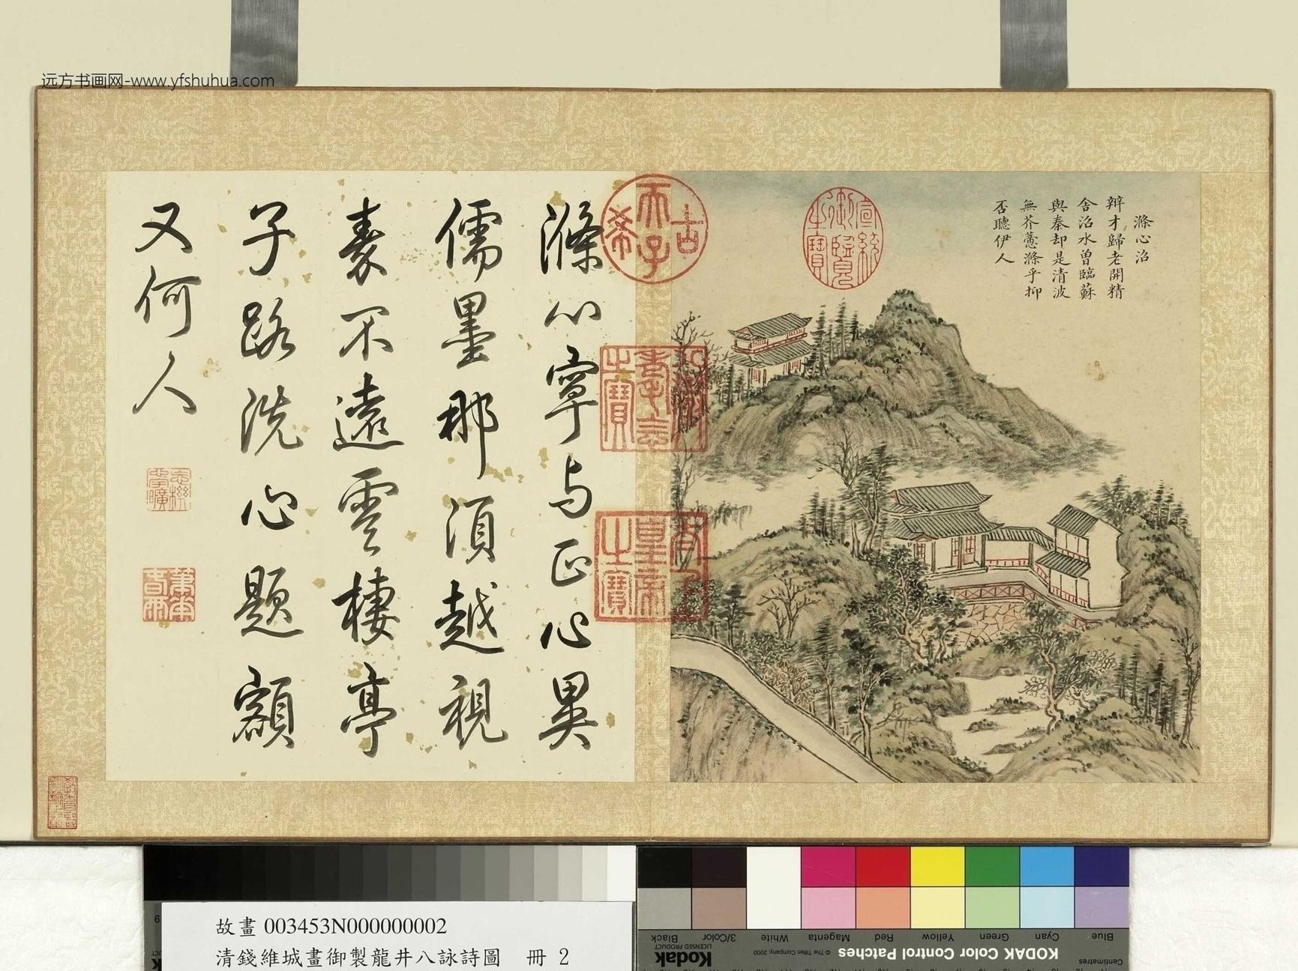 远方书画网-www.yfshuhua.com
滌心沼
辩才歸老開精
舍沼水曾臨蘇
與秦却是清波
無芥蔕滌乎抑
否聽伊人
滌心寧与正心異
儒墨那須越視
素不遠雲棲亭
子路洗心題額
又何人
古
天子
希
宣統
御覽
之寶
壽
之寶
太上
皇帝
之寶
故畫 003453N000000002
清錢維城畫御製龍井八詠詩圖 冊 2
Blue
Cyan
Green
Yellow
Red
Magenta
White
3/Color
Black
KODAK Color Control Patches
© The Tiffen Company, 2000
Kodak
LICENSED PRODUCT
Centimetres